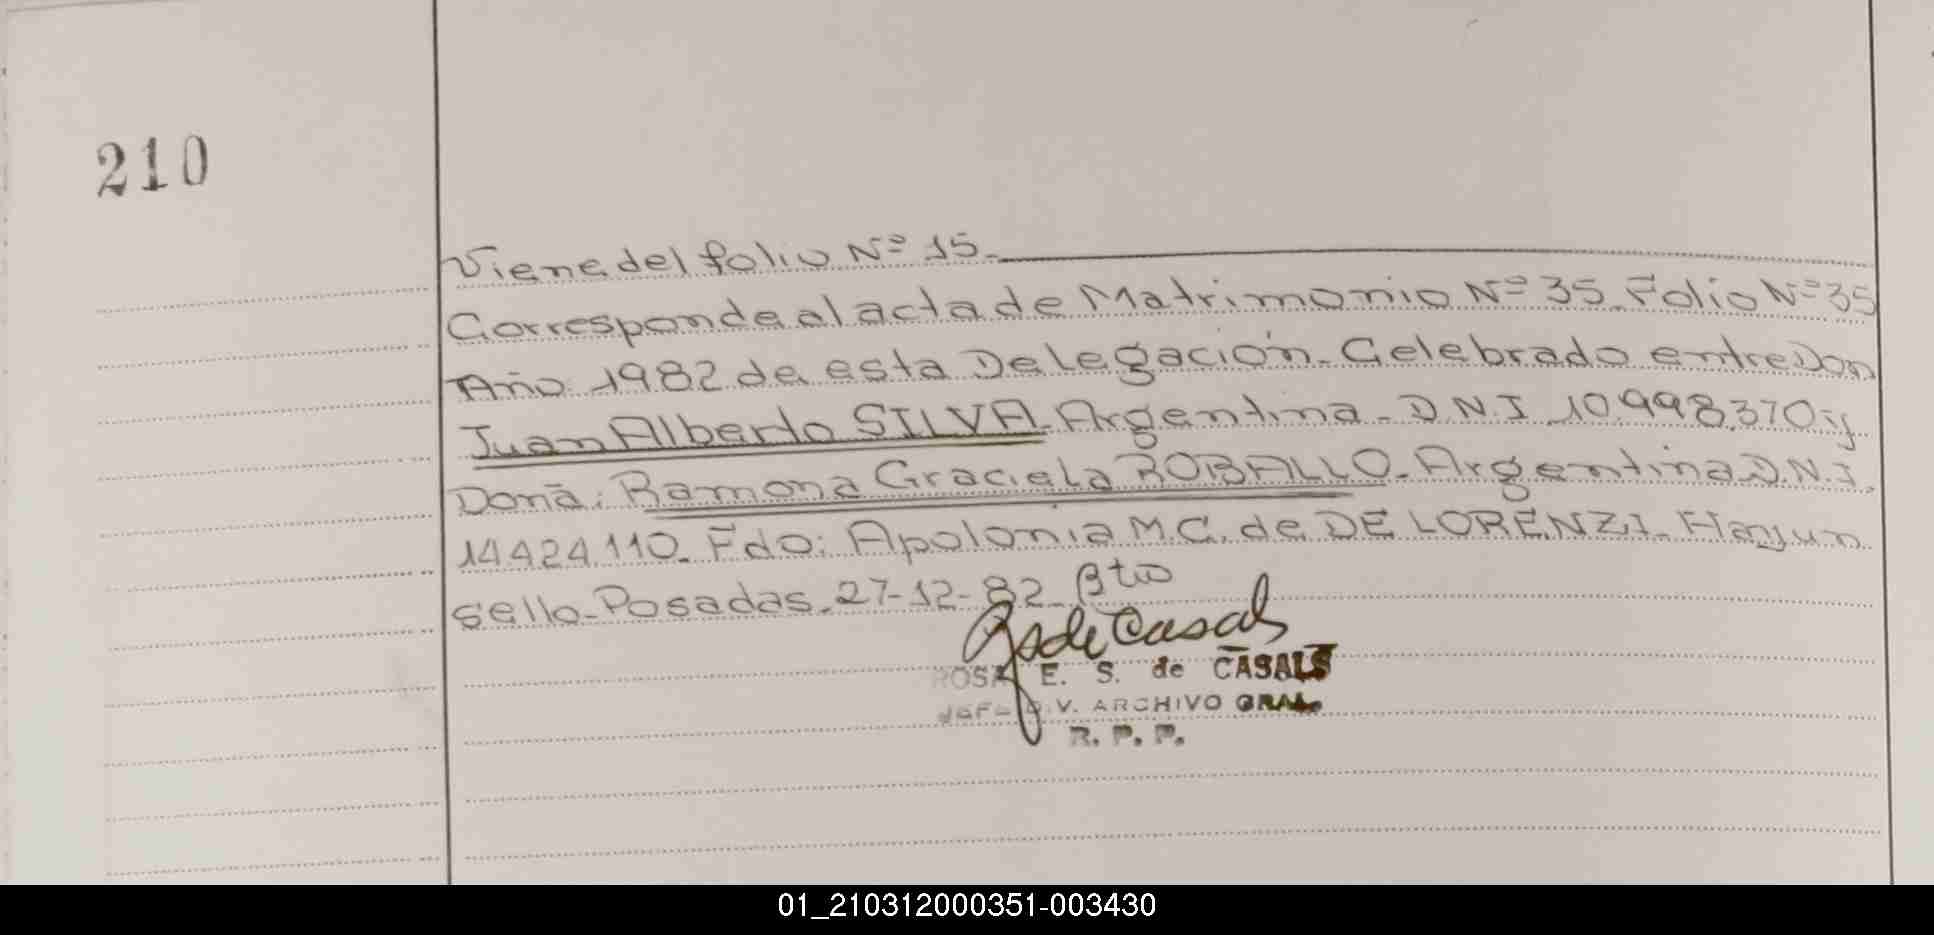 210
Viene del folio Nº 15.
Corresponde al acta de Matrimonio Nº 35. Folio Nº 35
Año 1982 de esta Delegación. Celebrado entre Don
Juan Alberto SILVA. Argentina. D.N.I 10.998.370 y
Doña: Ramona Graciela ROBALLO. Argentina D.N.I.
14.424.110. Fdo: Apolonia M.C. de DE LORENZI. Hay un
sello. Posadas. 27-12-82.
RS de Casals
ROSA E. S. de CASALS
JEFE DIV. ARCHIVO GRAL.
R. P. P.
01_210312000351-003430